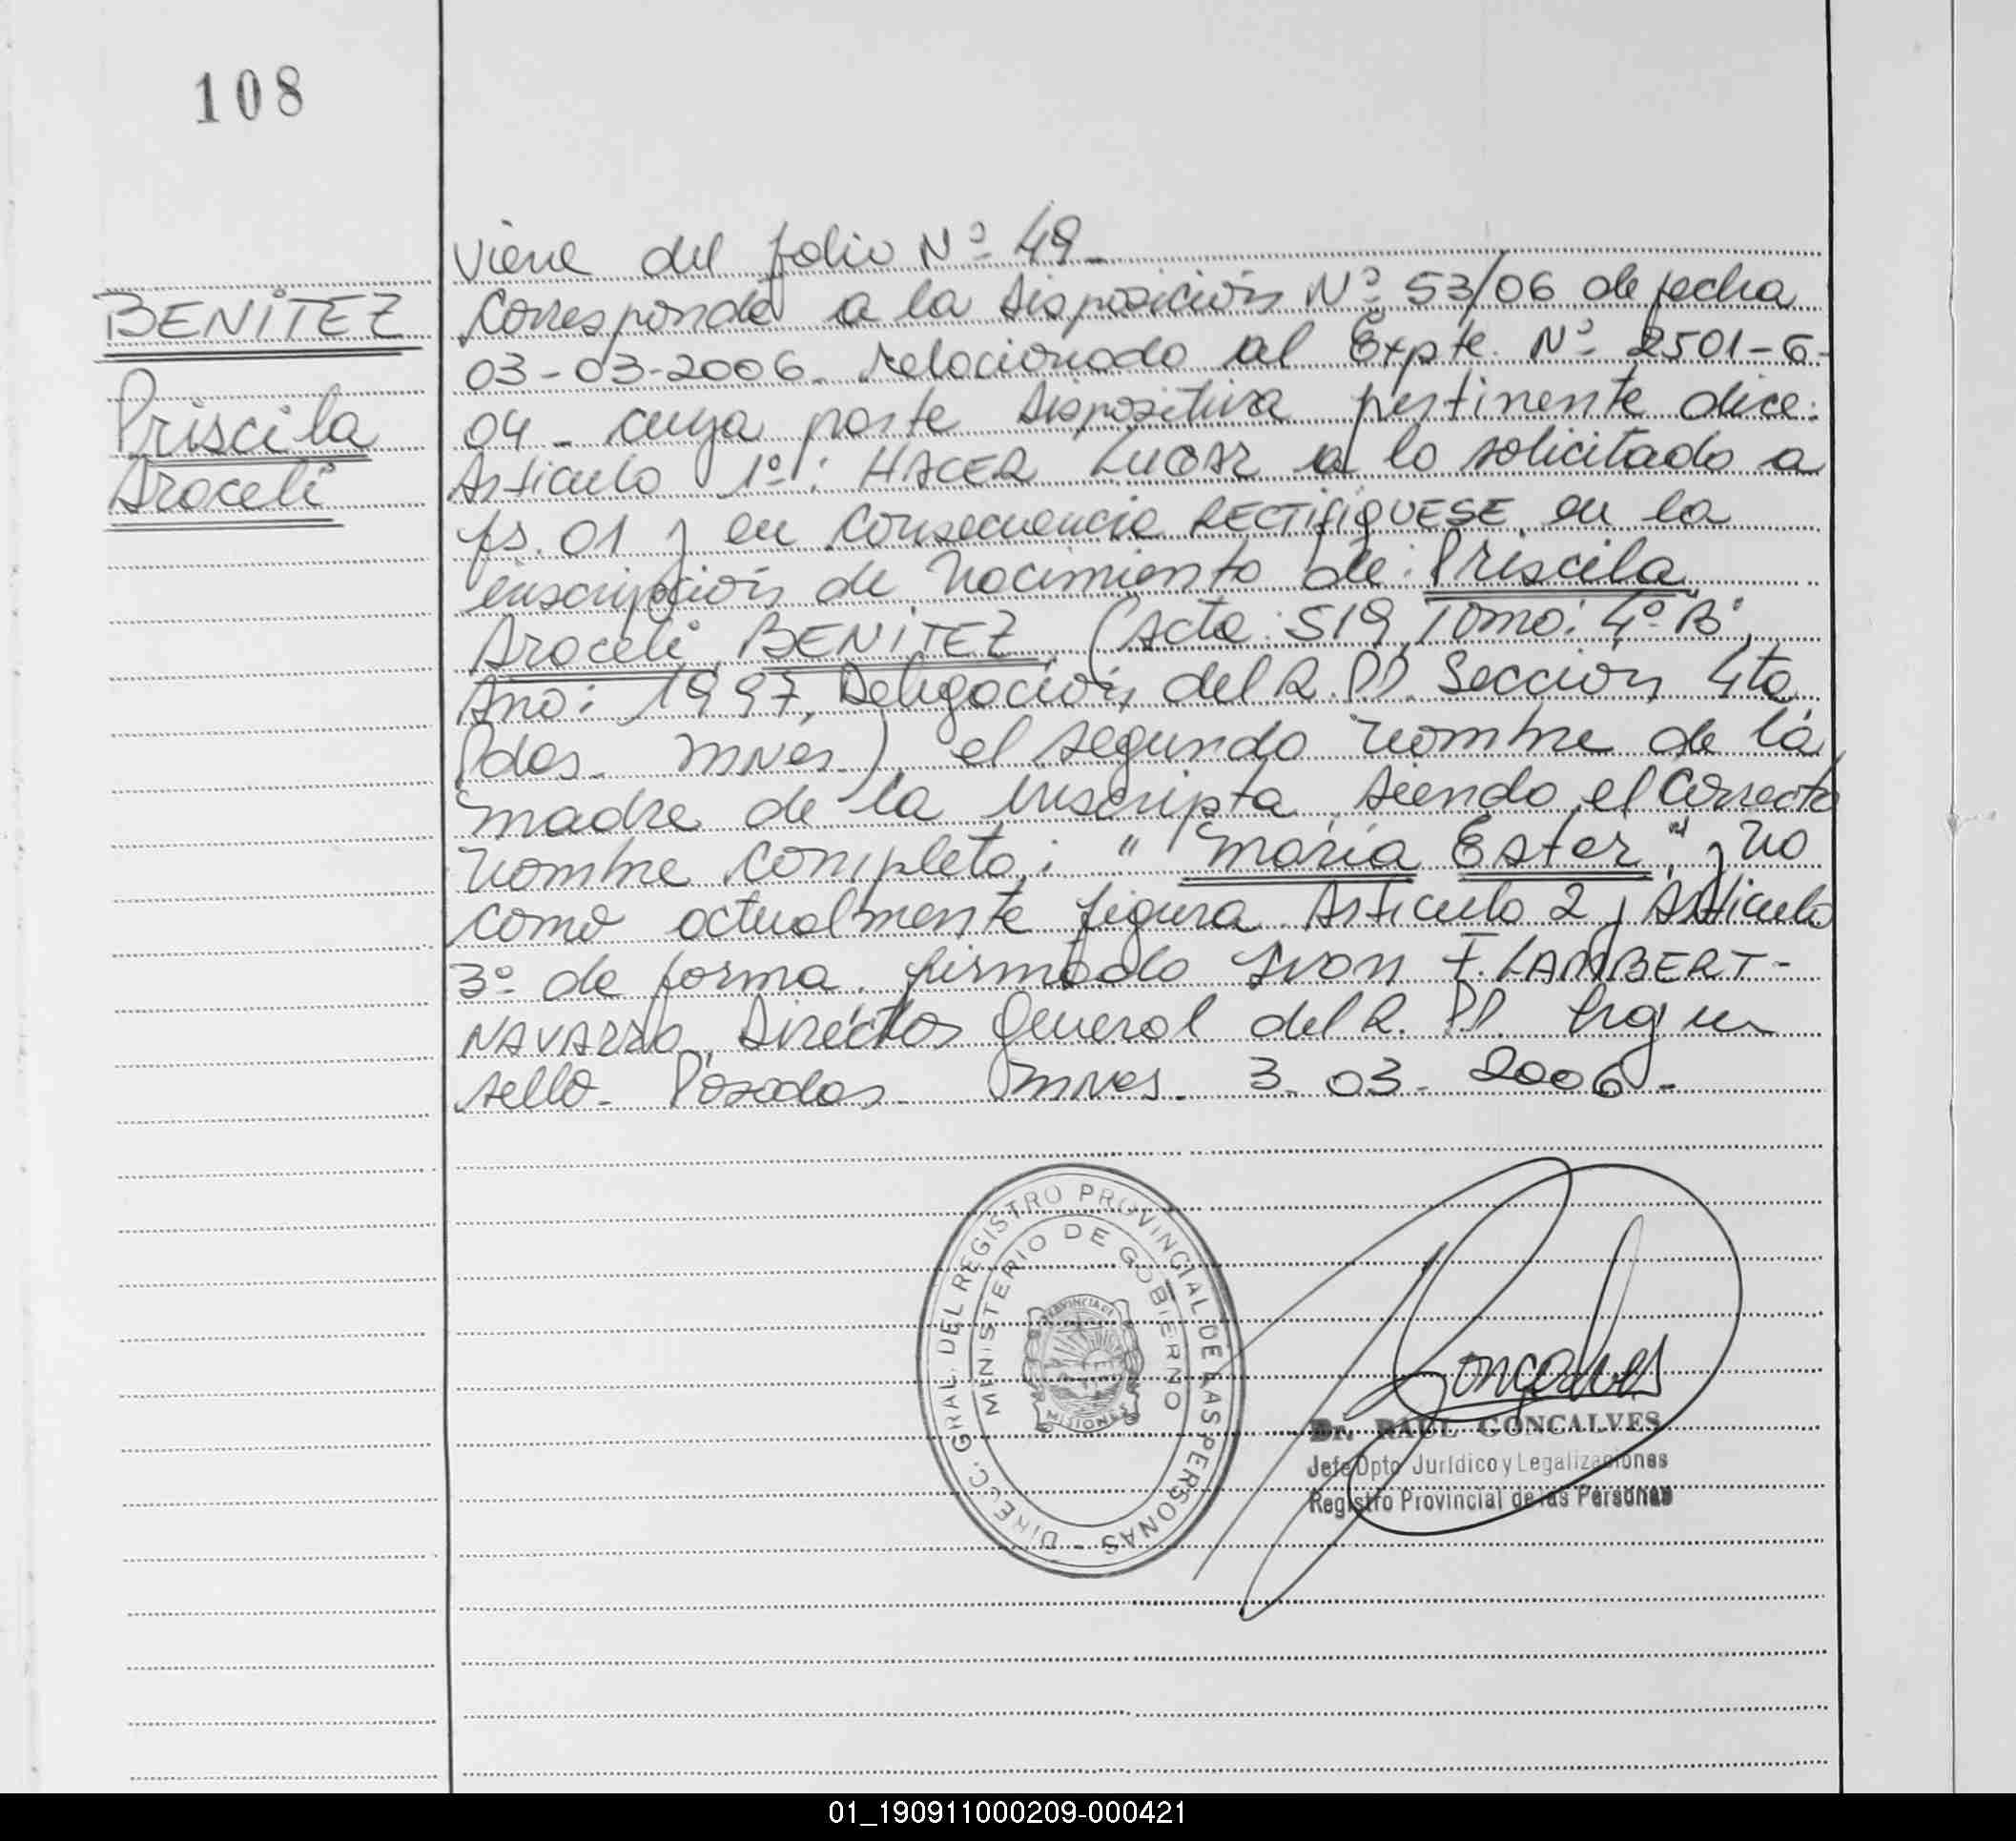 108
BENITEZ
Priscila
Araceli
Viene del folio Nº 49-
Corresponde a la Disposición Nº 53/06 de fecha
03-03-2006. relacionado al Expte. Nº 2501-6-
04 - cuya parte dispositiva pertinente dice:
Articulo 1º: HACER LUGAR a lo solicitado a
fs. 01 y en consecuencia RECTIFIQUESE en la
inscripción de nacimiento de: Priscila
Araceli BENITEZ (Acta: 519, Tomo: 4º "B",
Año: 1997, Delegación del R.PP. Sección 4ta
Pdas. Mnes.) el segundo nombre de la
madre de la inscripta, siendo el correcto
nombre completo: "María Ester" y no
como actualmente figura. Articulo 2 y Articulo
3º de forma. firmado Ivon F. LAMBERT-
NAVARRO, Director General del R. PP. Hay un
sello- Posadas- Mnes. 3-03-2006-
DIRECC. GRAL. DEL REGISTRO PROVINCIAL DE LAS PERSONAS -
MINISTERIO DE GOBIERNO
PROVINCIA DE
MISIONES
Gonçalves
Dr. RAUL GONCALVES
Jefe Dpto Jurídico y Legalizaciones
Registro Provincial de las Personas
01_190911000209-000421